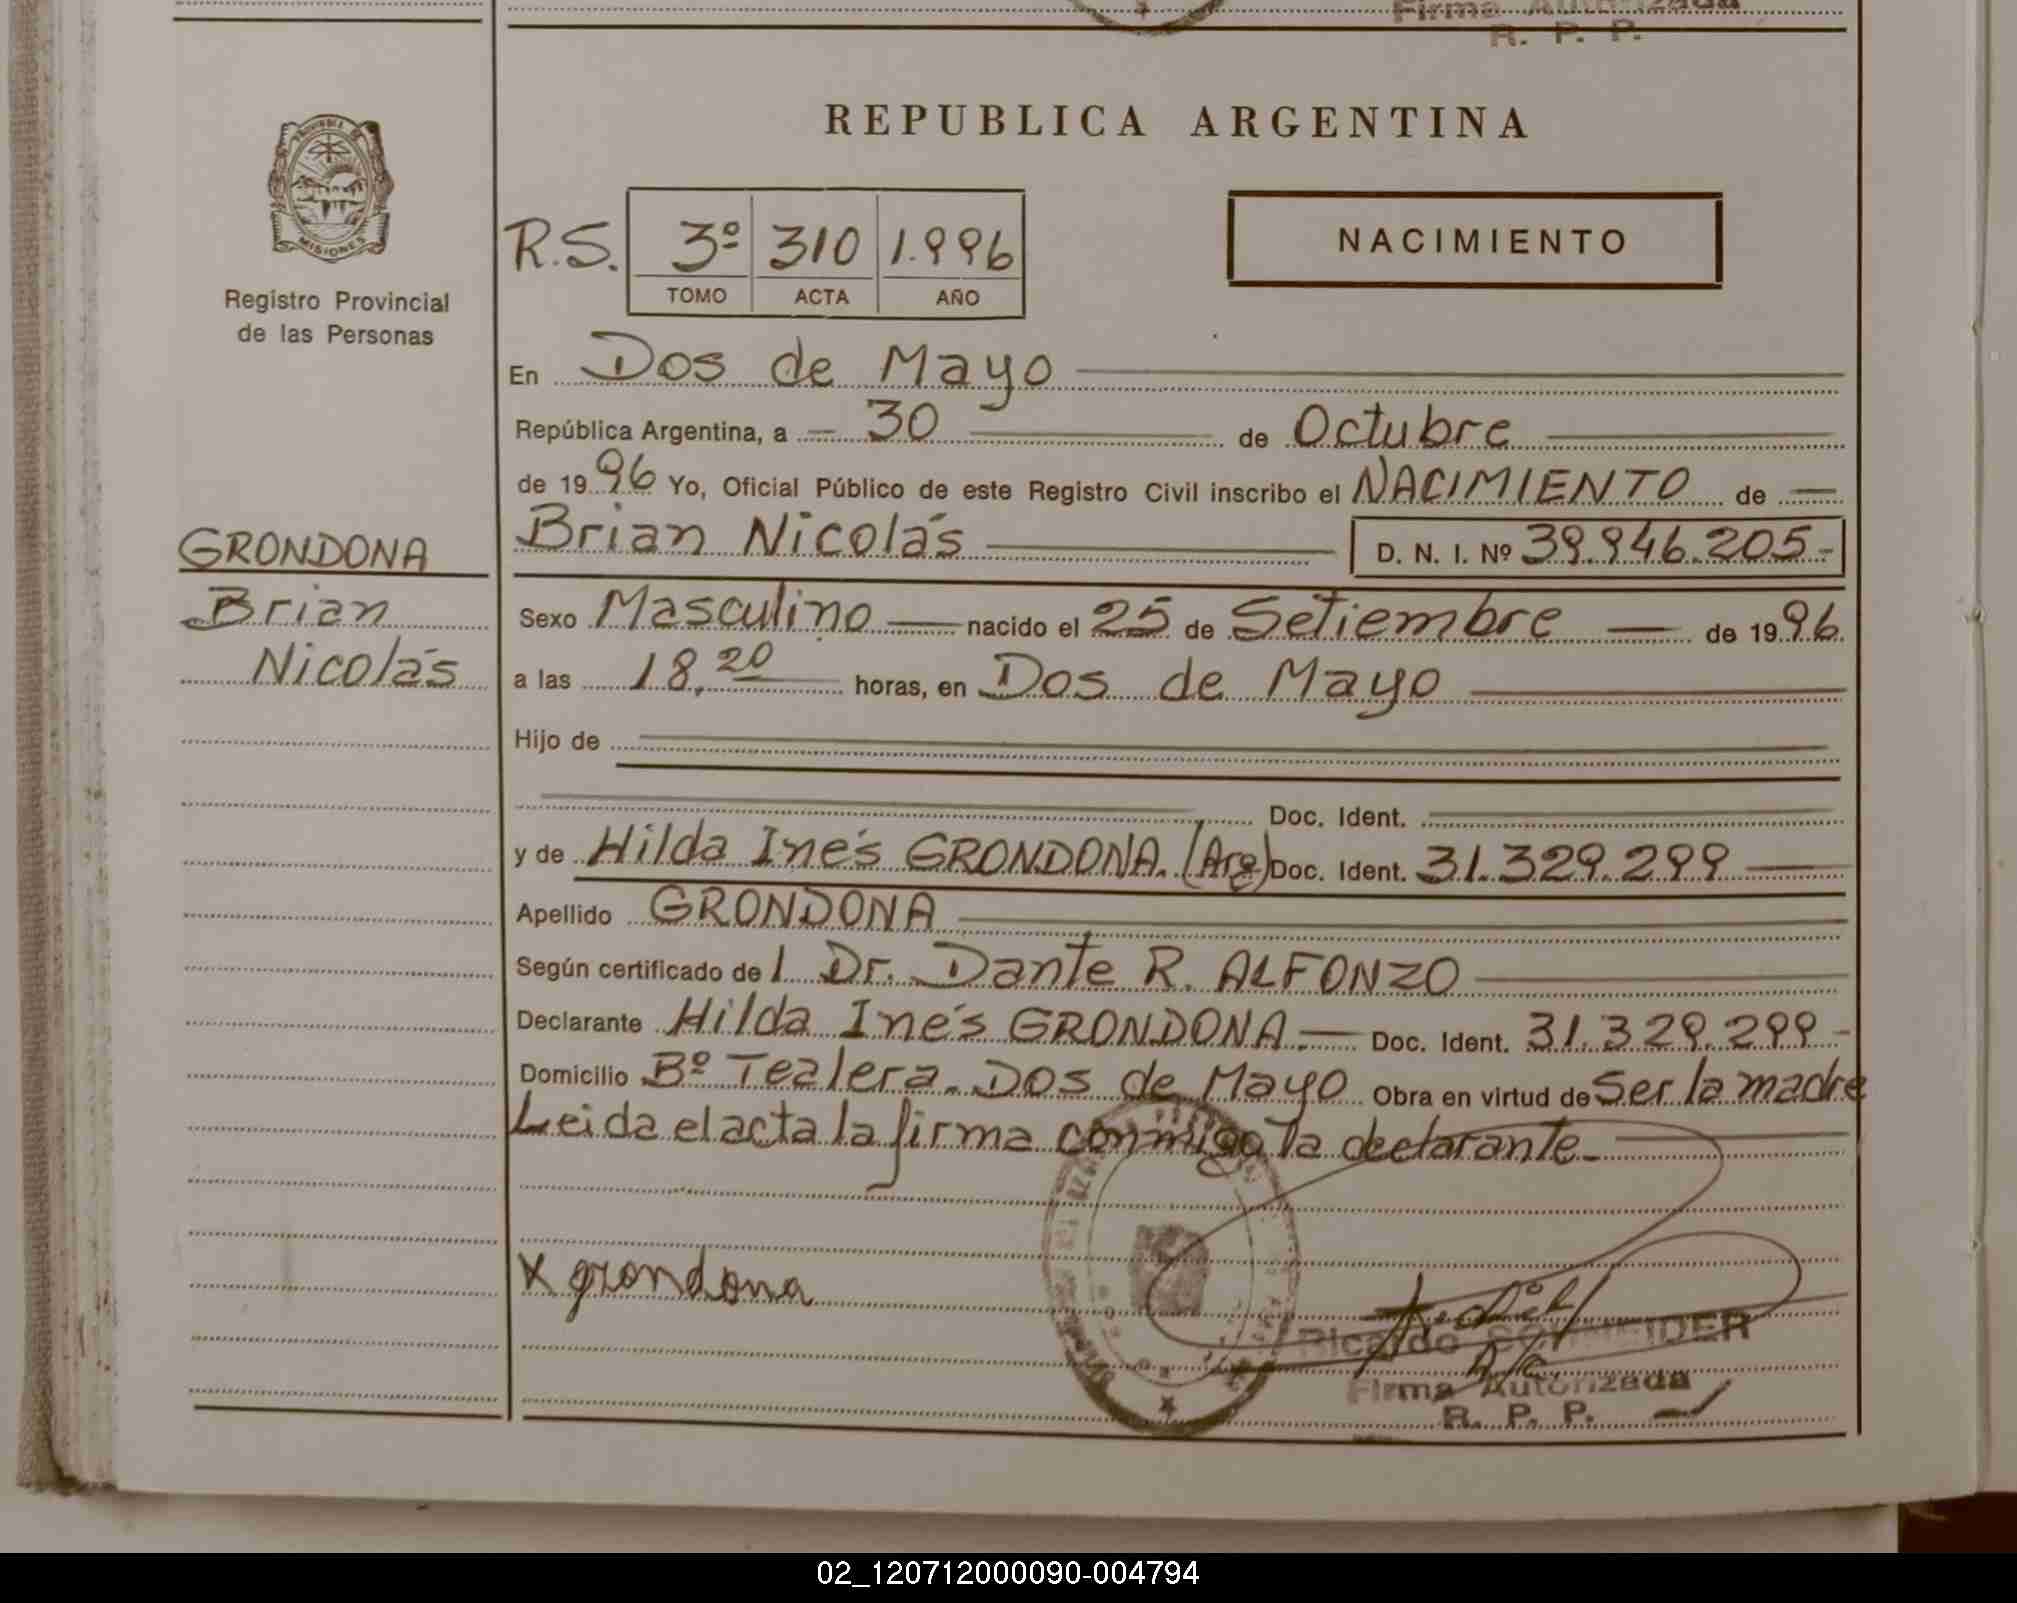 Firma Autorizada
R. P. P.
REPUBLICA ARGENTINA
MISIONES
Registro Provincial
de las Personas
R.S. 3º 310 1.996
TOMO ACTA AÑO
NACIMIENTO
En Dos de Mayo
República Argentina, a 30 de Octubre
de 1996 Yo, Oficial Público de este Registro Civil inscribo el NACIMIENTO de
GRONDONA
Brian
Nicolás
Brian Nicolás D. N. I. Nº 39.946.205-
Sexo Masculino nacido el 25 de Setiembre de 1996
a las 18,20 horas, en Dos de Mayo
Hijo de
Doc. Ident.
y de Hilda Inés GRONDONA. (Arg) Doc. Ident. 31.329.299
Apellido GRONDONA
Según certificado de l Dr. Dante R. ALFONZO
Declarante Hilda Inés GRONDONA.- Doc. Ident. 31.329.299-
Domicilio Bº Tealera. Dos de Mayo Obra en virtud de Ser la madre
Leida el acta la firma conmigo la declarante-
X grondona
Ricardo SCHNEIDER
Firma Autorizada
R. P. P.
02_120712000090-004794